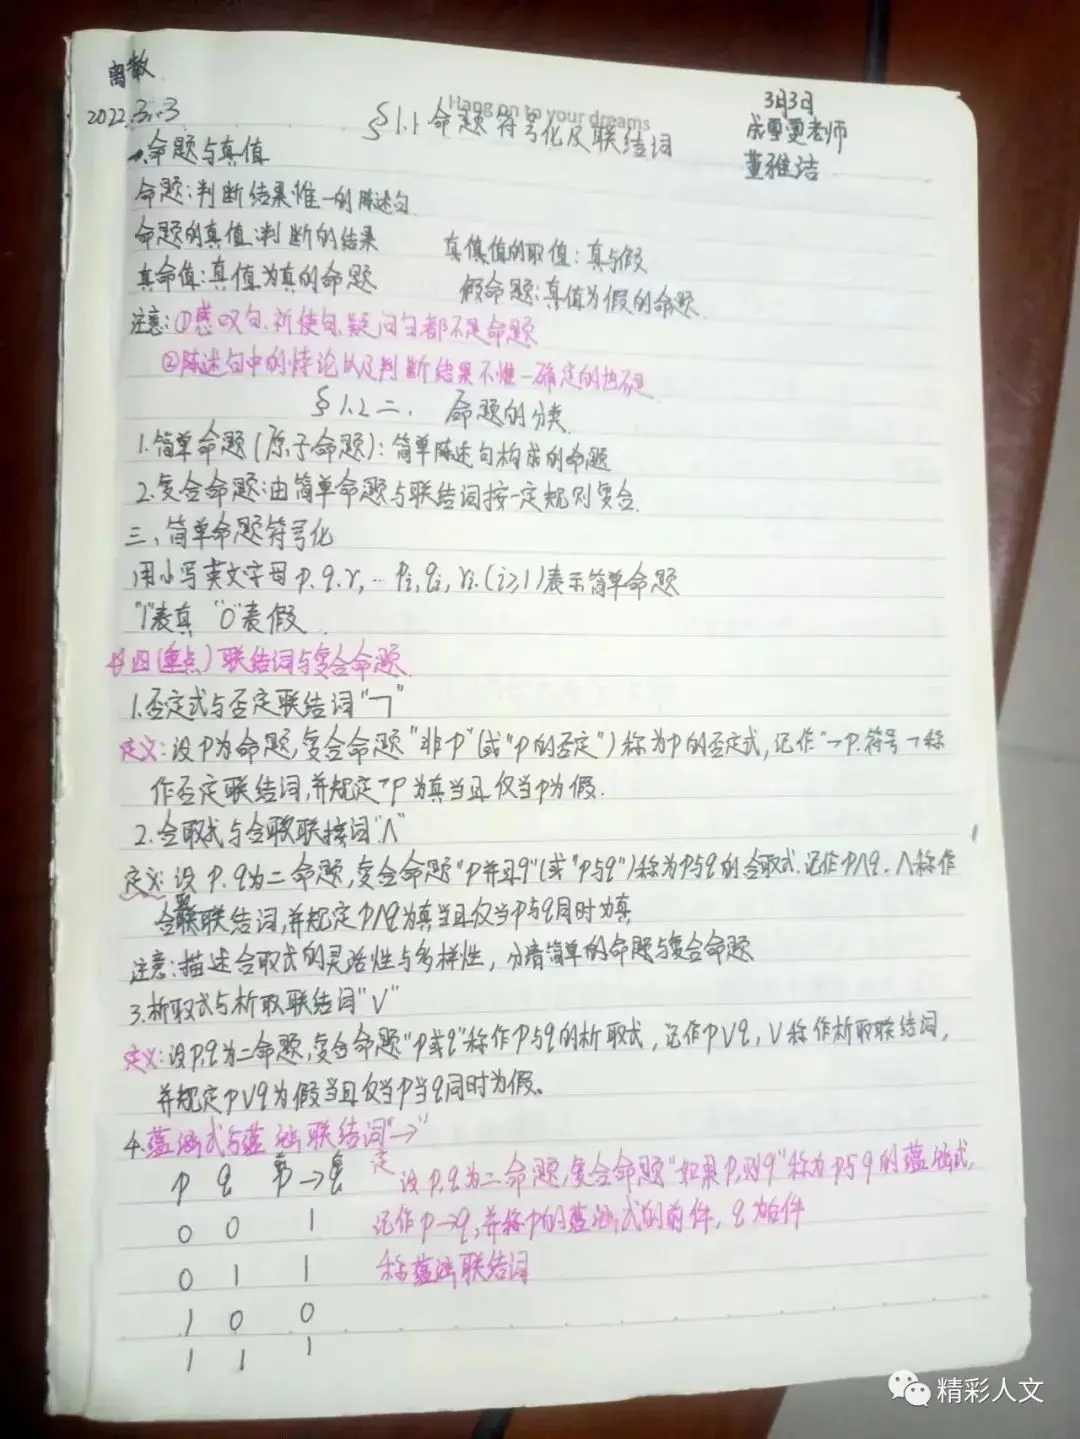 离散
2022.3.3
Hang on to your dreams
§1.1 命题符号化及联结词
3月3日
老师
董雅洁
一.命题与真值
命题:判断结果惟一的陈述句
命题的真值:判断的结果
真值的取值:真与假
真命值:真值为真的命题
假命题:真值为假的命题
注意:①感叹句、祈使句、疑问句都不是命题
②陈述句中的悖论以及判断结果不惟一确定的也不是
§1.2 二、命题的分类
1.简单命题(原子命题):简单陈述句构成的命题
2.复合命题:由简单命题与联结词按一定规则复合
三、简单命题符号化
用小写英文字母 p.q.r, … pi,qi,ri.(i≥1)表示简单命题
"1"表真 "0"表假
四(重点)联结词与复合命题
1.否定式与否定联结词"¬"
定义:设p为命题,复合命题"非p"(或"p的否定")称为p的否定式,记作¬p.符号¬称
作否定联结词,并规定¬p为真当且仅当p为假.
2.合取式与合取联接词"∧"
定义:设p.q为二命题,复合命题"p并且q"(或"p与q")称为p与q的合取式.记作p∧q.∧称作
合取联结词,并规定p∧q为真当且仅当p与q同时为真
注意:描述合取式的灵活性与多样性,分清简单的命题与复合命题
3.析取式与析取联结词"∨"
定义:设p,q为二命题,复合命题"p或q"称作p与q的析取式,记作p∨q,∨称作析取联结词,
并规定p∨q为假当且仅当p当q同时为假。
4.蕴涵式与蕴涵联结词"→"
p q p→q
定 设p,q为二命题,复合命题"如果p,则q"称为p与q的蕴涵式,
0 0 1
记作p→q,并称p的蕴涵式的前件,q为后件
0 1 1
称蕴涵联结词
1 0 0
1 1 1
精彩人文